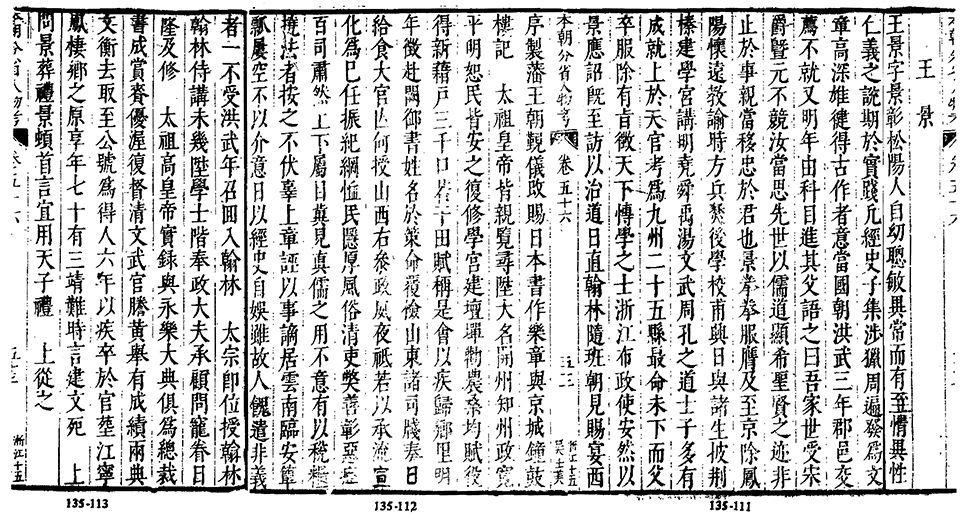 王景
王景字景彰松陽人自幼聰敏異常而有至情異性
仁義之說期於實踐凡經史子集涉獵周遍發為文
章高深雄健得古作者意當國朝洪武三年郡邑交
薦不就又明年由科目進其父語之曰吾家世受宋
爵暨元不競汝當思先世以儒道顯希聖賢之迹非
止於事親當移忠於君也景拳拳服膺及至京除鳳
陽懷遠教諭時方兵燹後學校甫興日與諸生披荆
榛建學宮講明堯舜禹湯文武周孔之道士子多有
成就上於天官考為九州二十五縣最命未下而父
卒服除有旨徵天下博學之士浙江布政使安然以
景應詔既至訪以治道日直翰林隨班朝見賜宴西
本朝分省人物考
卷五十六
五二
浙江十五
序製藩王朝覲儀政賜日本書作樂章與京城鐘鼓
樓記 太祖皇帝皆親覽尋陞大名開州知州政寬
平明恕民皆安之復修學宮建壇墠物農桑均賦役
得新藉戶三千口若干田賦稱是會以疾歸鄉里明
年徵赴闕御書姓名於策命覆儉山東諸司牋奉日
給食大官以何授山西右參政夙夜祇若以承流宣
化為巳任振紀綱恤民隱厚風俗清吏獘善彰惡癉
百司肅然上下屬目冀見真儒之用不意有以稅糧
違法者按之不伏辜上章誣以事謫居雲南臨安簞
瓢屢空不以介意日以經史自娛雖故人餽遺非義
者一不受洪武年召囬入翰林 太宗即位授翰林
翰林侍講未幾陞學士階奉政大夫承顧問寵眷日
隆及修 太祖高皇帝實録與永樂大典俱為總裁
書成賞賚優渥復督清文武官謄黃舉有成績兩典
文衡去取至公號為得人六年以疾卒於官塟江寧
鳳棲鄉之原享年七十有三靖難時言建文死 上
問景葬禮景頓首言宜用天子禮 上從之
卷五十六
五三
浙江十五
135-113
135-112
135-111